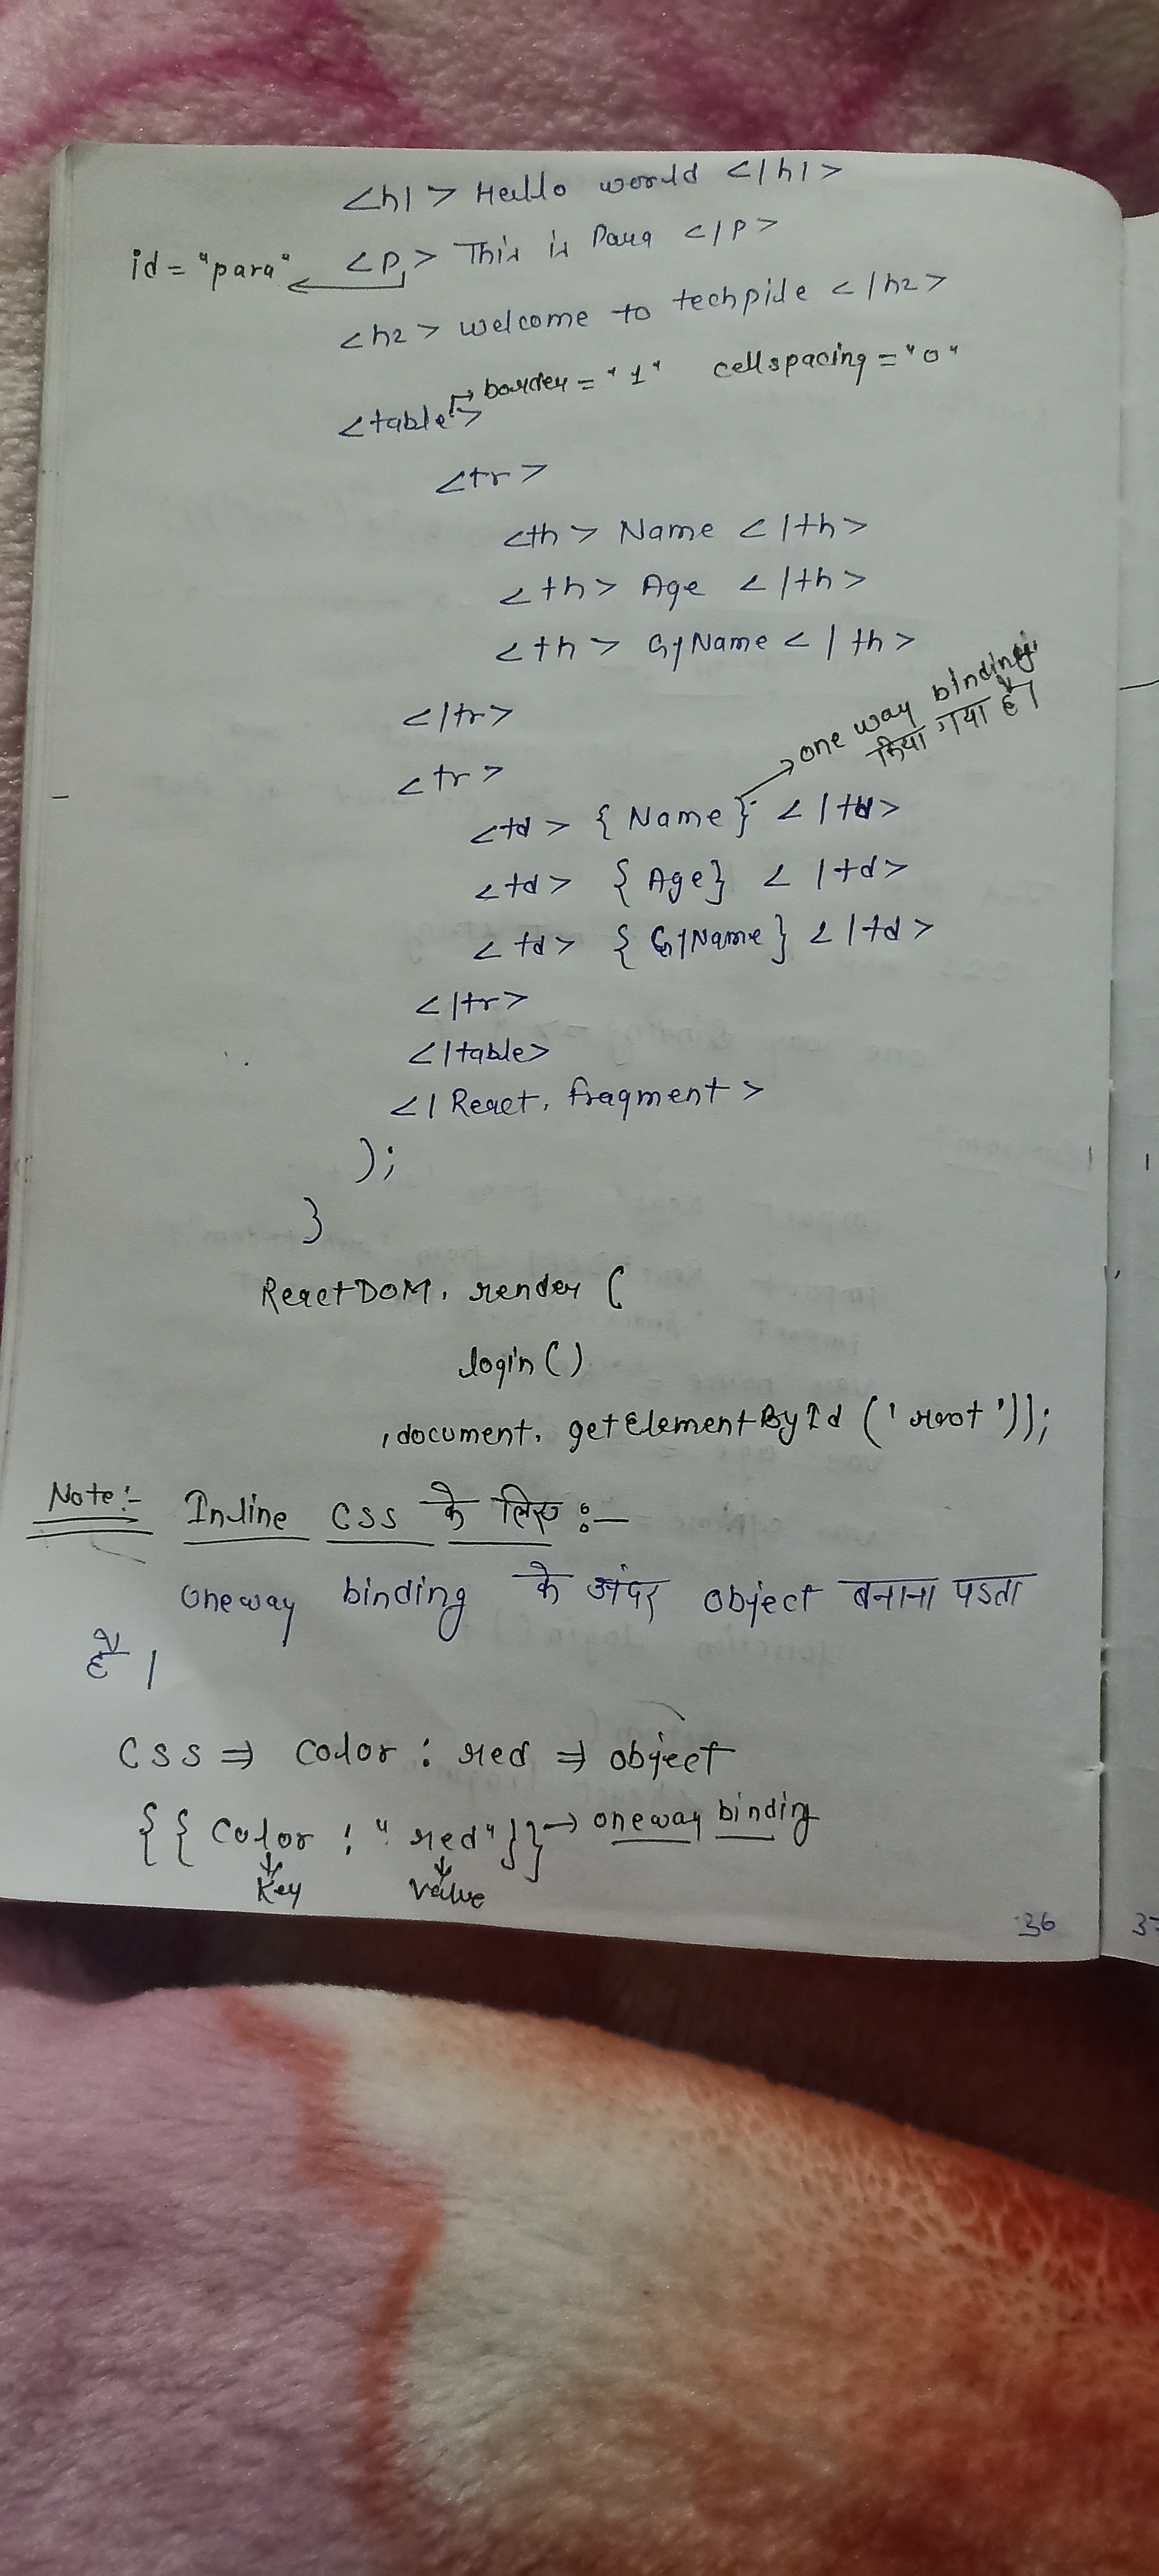 <h1> Hello world </h1>
id="para" <p> This is Para </p>
<h2> welcome to techpile </h2>
border="1" cellspacing="0"
<table>
<tr>
<th> Name </th>
<th> Age </th>
<th> GfName </th>
</tr>
one way binding
किया गया है।
<tr>
<td> {Name} </td>
<td> {Age} </td>
<td> {GfName} </td>
</tr>
</table>
</React.fragment>
);
}
ReactDOM.render(
login()
,document.getElementById('root'));
Note:- Inline CSS के लिए :-
oneway binding के अंदर object बनाना पडता
है।
CSS ⇒ color : red ⇒ object
{{color : "red"}} → oneway binding
Key value
36